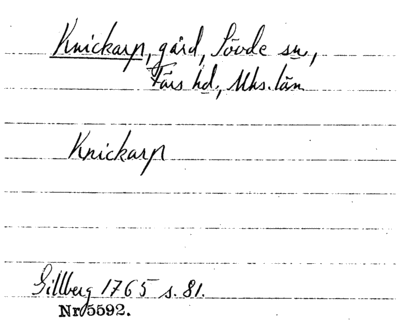 Knickarp, gård, Sövde sn,
Färs hd, Mhs. län
Knickarp
Gillberg 1765 s. 81.
Nr 5592.